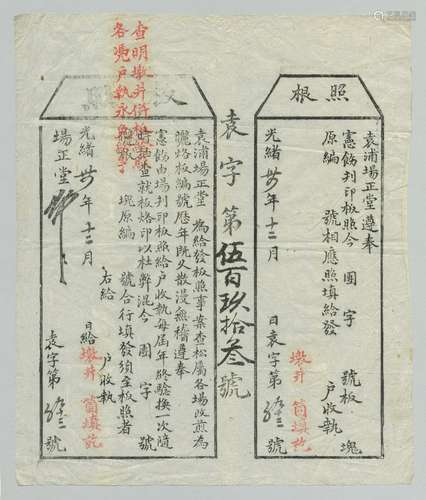 照根
袁浦場正堂遵奉
憲飭刋印板照今 團 字 號板 塊
原編 號相應照填給發 戶收執
光緒卅 年十二月 日袁字第 號
墩井 筒填訖
袁字第伍百玖拾叁號
查明墩井
各憑戶執永
袁浦場正堂 為給發板照事案查松屬各場改煎為
曬烙板編號歷年既久散漫無稽遵奉
憲飭由場刋印板照給戶收執每屆年終驗換一次隨
時抽查就板烙印以杜弊混今 團 字 號
板 塊原編 號合行填發須至板照者
右給 戶收執
光緒卅 年十二月 日給
墩井 筒填訖
場正堂
袁字第 號